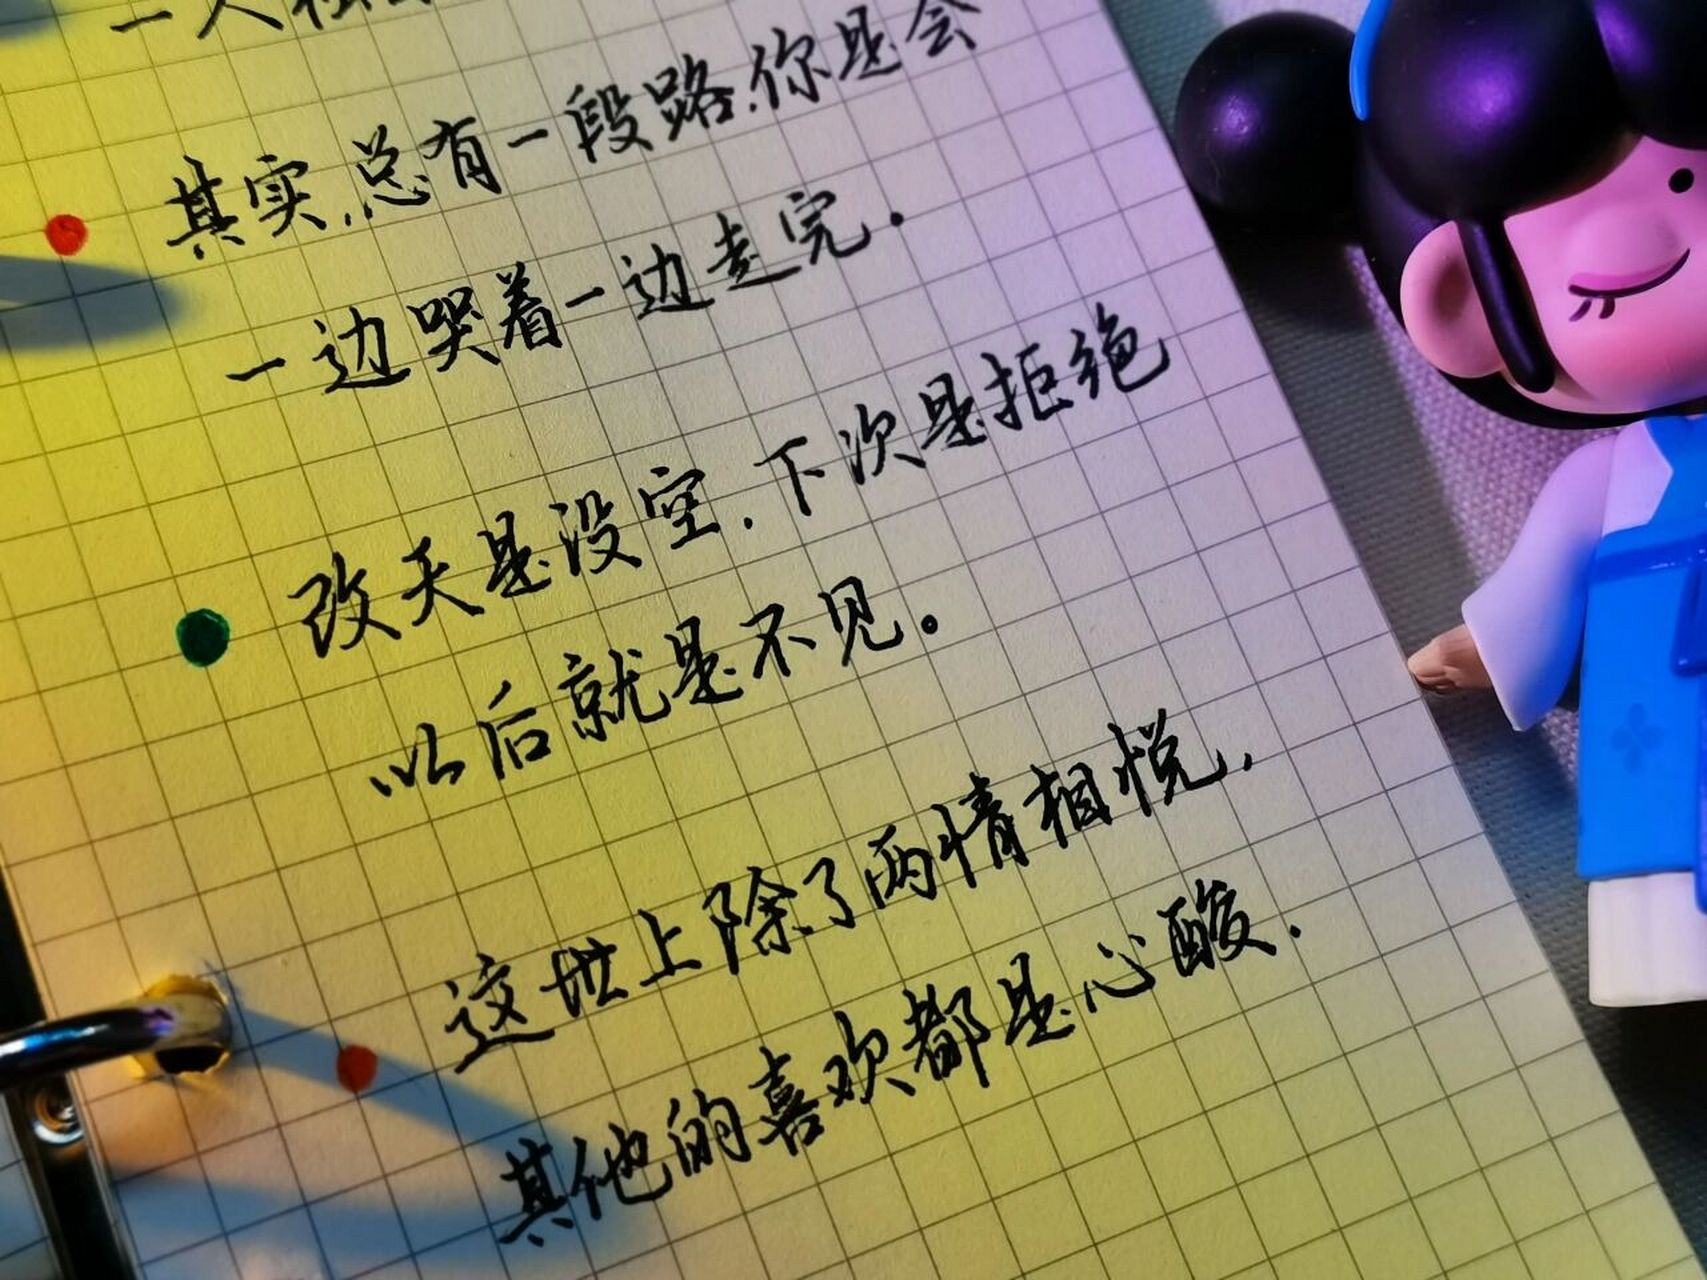 一人
其实,总有一段路,你是会
一边哭着一边走完.
改天是没空,下次是拒绝
以后就是不见。
这世上除了两情相悦,
其他的喜欢都是心酸.